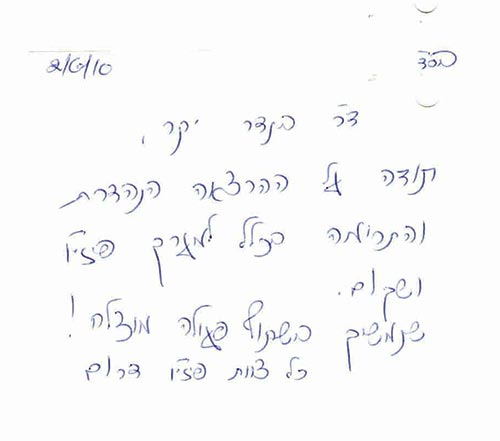 בס"ד
2/6/10
ד"ר בנדר יקר,
תודה על ההרצאה הנהדרת
והתרומה בכלל למערך פיזיו
ושיקום.
שנמשיך בשיתוף פעולה מוצלח!
כל צוות פיזיו דרום